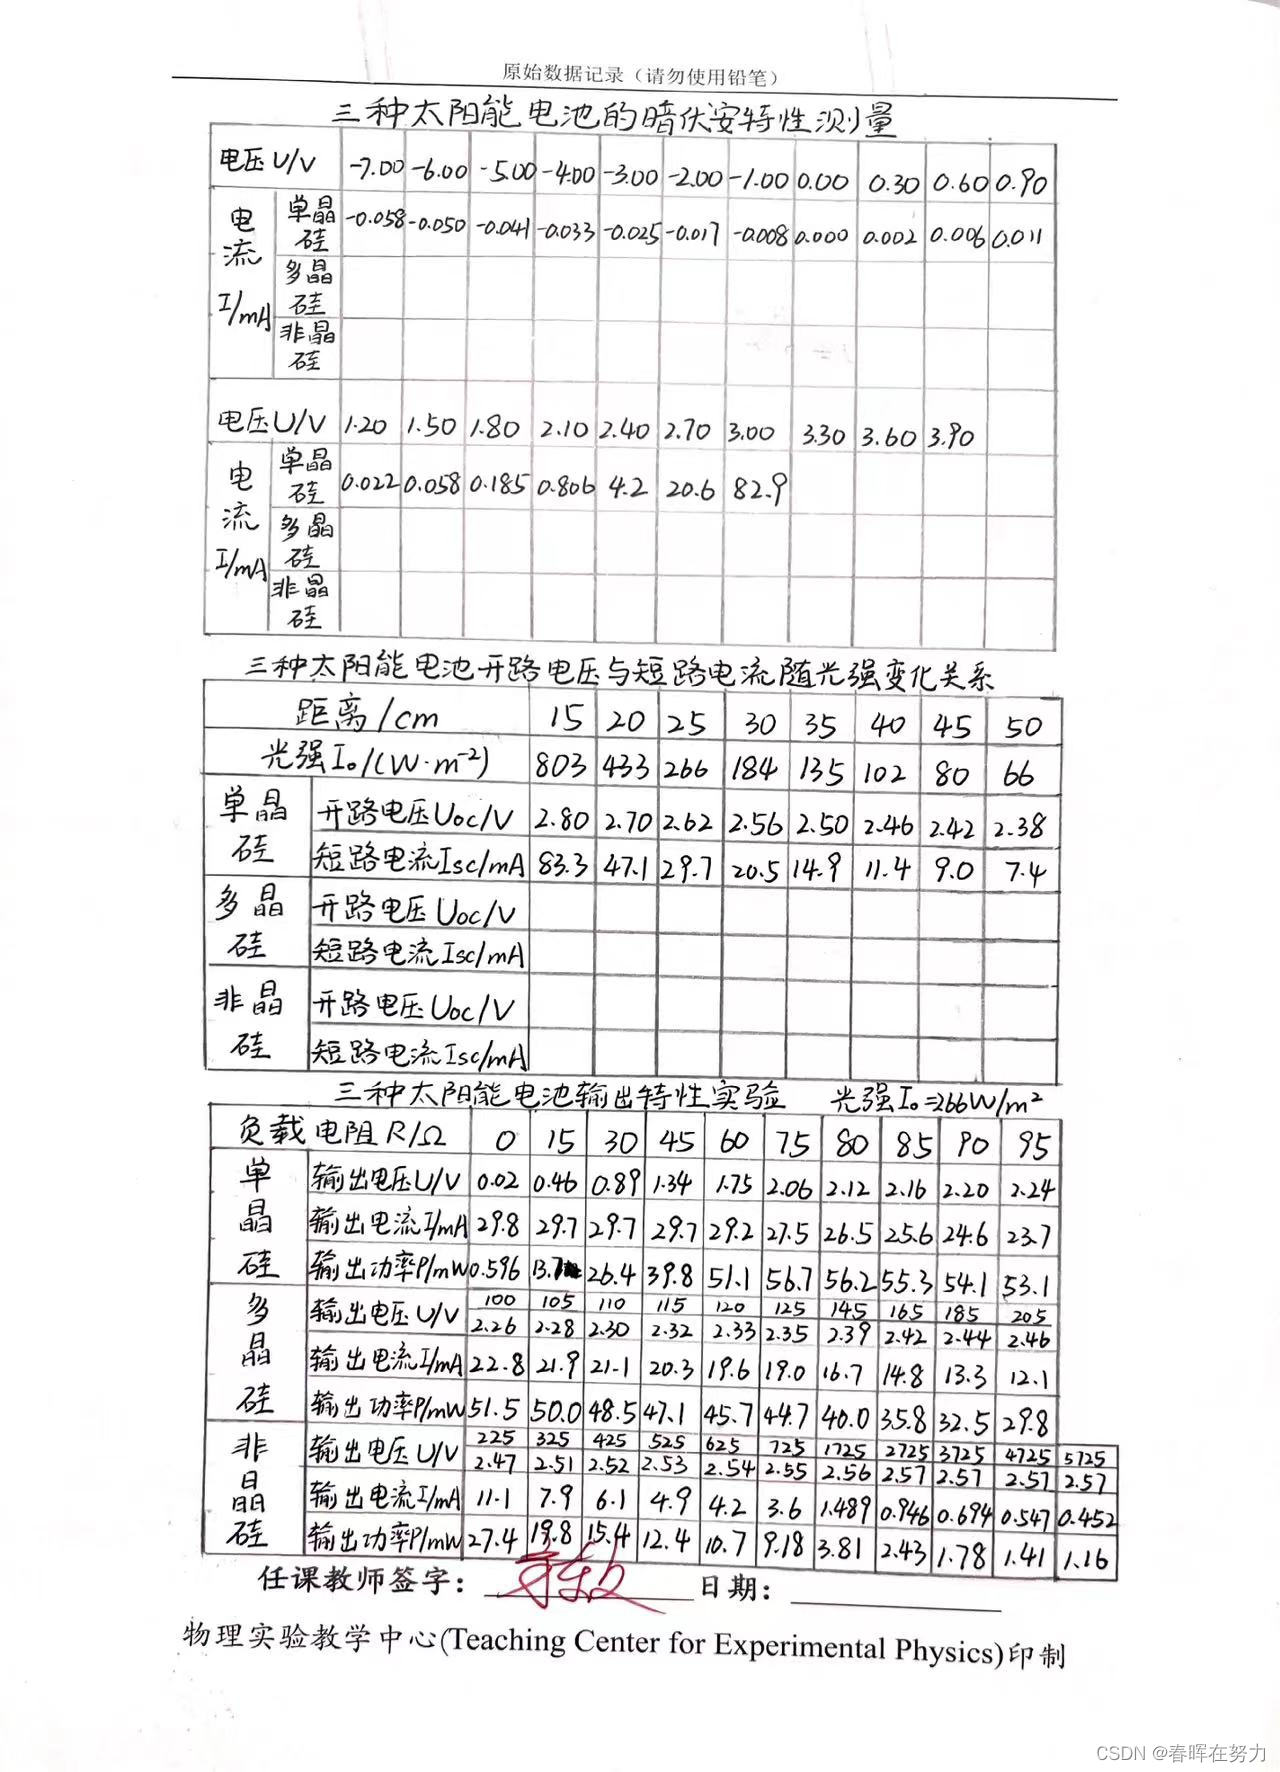 原始数据记录（请勿使用铅笔）
三种太阳能电池的暗伏安特性测量
电压U/V -7.00 -6.00 -5.00 -4.00 -3.00 -2.00 -1.00 0.00 0.30 0.60 0.90
电流I/mA
单晶硅 -0.058 -0.050 -0.041 -0.033 -0.025 -0.017 -0.008 0.000 0.002 0.006 0.011
多晶硅
非晶硅
电压U/V 1.20 1.50 1.80 2.10 2.40 2.70 3.00 3.30 3.60 3.90
电流I/mA
单晶硅 0.022 0.058 0.185 0.806 4.2 20.6 82.9
多晶硅
非晶硅
三种太阳能电池开路电压与短路电流随光强变化关系
距离/cm 15 20 25 30 35 40 45 50
光强I₀/(W·m⁻²) 803 433 266 184 135 102 80 66
单晶硅
开路电压Uoc/V 2.80 2.70 2.62 2.56 2.50 2.46 2.42 2.38
短路电流Isc/mA 83.3 47.1 29.7 20.5 14.9 11.4 9.0 7.4
多晶硅
开路电压Uoc/V
短路电流Isc/mA
非晶硅
开路电压Uoc/V
短路电流Isc/mA
三种太阳能电池输出特性实验 光强I₀=266W/m²
负载电阻R/Ω 0 15 30 45 60 75 80 85 90 95
单晶硅
输出电压U/V 0.02 0.46 0.89 1.34 1.75 2.06 2.12 2.16 2.20 2.24
输出电流I/mA 29.8 29.7 29.7 29.7 29.2 27.5 26.5 25.6 24.6 23.7
输出功率P/mW 0.596 13.7 26.4 39.8 51.1 56.7 56.2 55.3 54.1 53.1
多晶硅
100 105 110 115 120 125 145 165 185 205
输出电压U/V 2.26 2.28 2.30 2.32 2.33 2.35 2.39 2.42 2.44 2.46
输出电流I/mA 22.8 21.9 21.1 20.3 19.6 19.0 16.7 14.8 13.3 12.1
输出功率P/mW 51.5 50.0 48.5 47.1 45.7 44.7 40.0 35.8 32.5 29.8
非晶硅
225 325 425 525 625 725 1725 2725 3725 4725 5725
输出电压U/V 2.47 2.51 2.52 2.53 2.54 2.55 2.56 2.57 2.57 2.57 2.57
输出电流I/mA 11.1 7.9 6.1 4.9 4.2 3.6 1.489 0.946 0.694 0.547 0.452
输出功率P/mW 27.4 19.8 15.4 12.4 10.7 9.18 3.81 2.43 1.78 1.41 1.16
任课教师签字： 日期：
物理实验教学中心(Teaching Center for Experimental Physics)印制
CSDN @春晖在努力